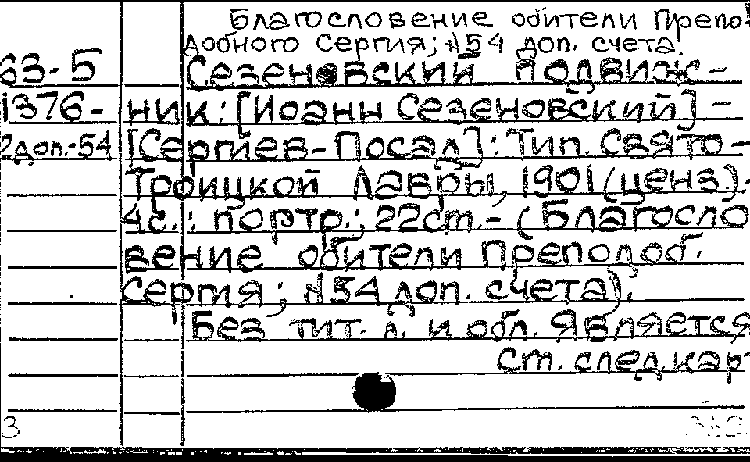 Благословение обители Препо-
добного Сергия; №54 доп. счета.
63-5 Сезеновский подвиж-
1376- ник: [Иоанн Сезеновский] -
2 доп.-54 [Сергиев-Посад]: Тип. Свято-
Троицкой Лавры, 1901 (ценз).-
4с.: портр.; 22см. - (Благосло
вение обители Преподоб.
Сергия; №54 доп. счета).
Без тит. л. и обл. Является
См. след. кар
3